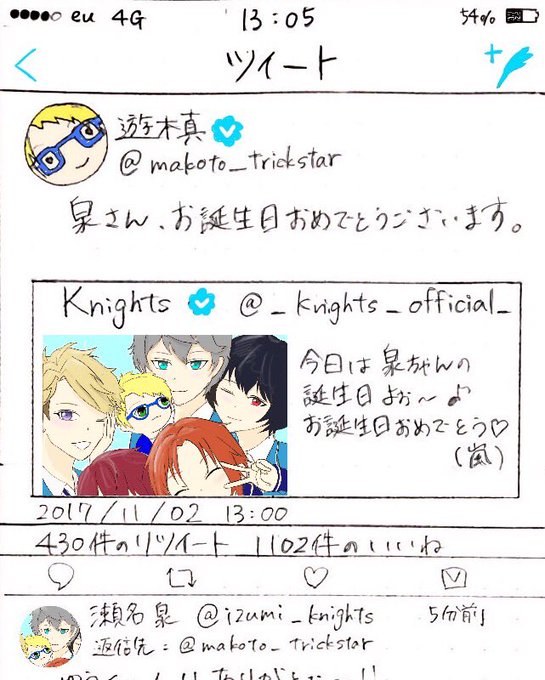 eu 4G 13:05 54%
ツイート
遊木真
@makoto_trickstar
泉さん、お誕生日おめでとうございます。
Knights @_knights_official_
今日は泉ちゃんの
誕生日よぉ〜♪
お誕生日おめでとう♡
(嵐)
2017/11/02 13:00
430件のリツイート 1102件のいいね
瀬名泉 @izumi_knights 5分前
返信先:@makoto_trickstar